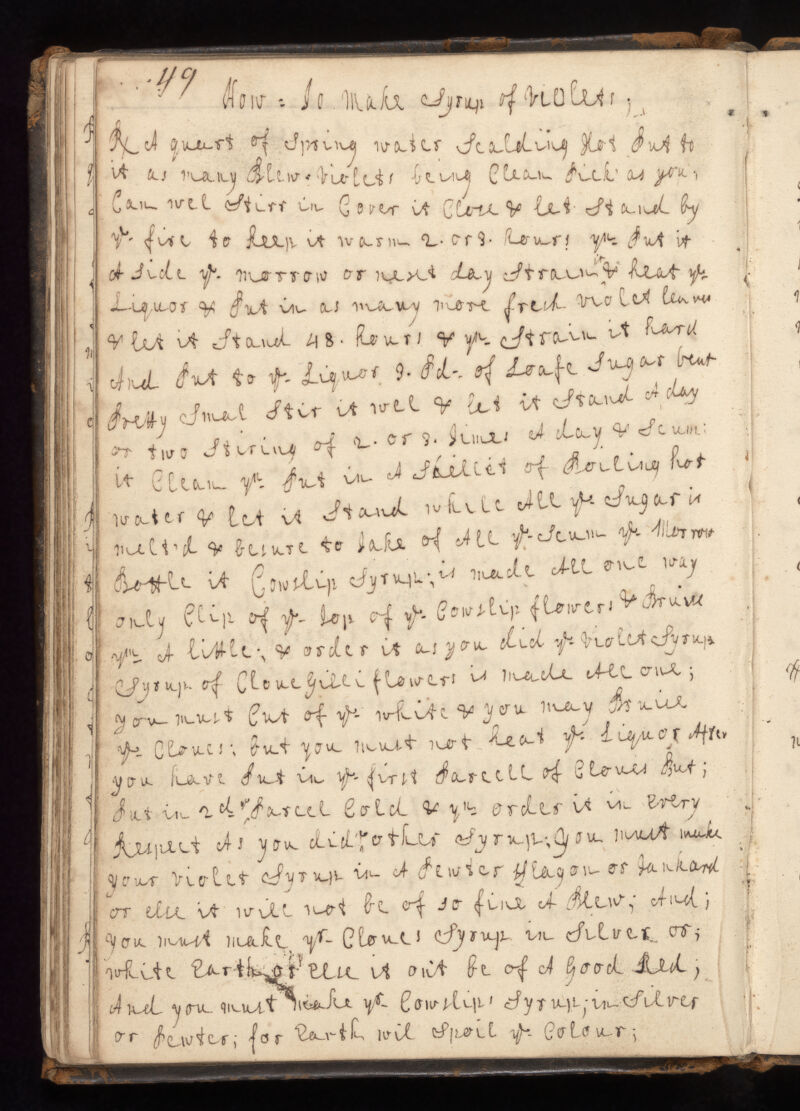 49
How : To make Syrup of Violets ;
Rx A quart of Spring water Scalding Hot Put to
it as many Blew Violets being Clean Pick as you
Can wel Stirr in Cover it Close & let Stand by
ye fire to keep it warm 2. or 3. hours yn Put it
A Side ye morrow or next day Strain it & heat ye
Liquor & Put in as many more fresh violet leaves
& let it Stand 48. hours & yn Strain it hard
And Put to ye Liquor 3. Pd. of Loafe Sugar beat
Pretty Smal Stir it wel & let it Stand A day
or two Stiring of 2. or 3. times A day & Scum:
it Clean yn Put in A Skellet of Boiling hot
water & let it Stand while All ye Sugar is
melt'd & besure to Take of All ye Scum ye Morrow
Bottle it Cowslip Syrup ; is made All one way
only Clip of ye Top of ye Cowslip flowers & Bruise
ym A little ; & order it as you did ye violet Syrup
Syrup of Clove Gilliflowers is made All one ;
you must Cut of ye white & you may Bruise
ye Cloves ; but you must not heat ye Liquor After
you have Put in ye first Parcell of Cloves But ;
Put in 2d Parcel Cold & yn order it in Every
Respect As you did other Syrup ; you must make
your violet Syrup in A Pewter Flagon or Tankard
or else it will not be of so fine A Blew ; And ;
you must make yr Cloves Syrup in Silver or ;
white Earth or Else it on't be of A Good Red ;
And you must make yr Cowslips Syrup ; in Silver
or Pewter ; for Earth wil Spoil ye Colour ;